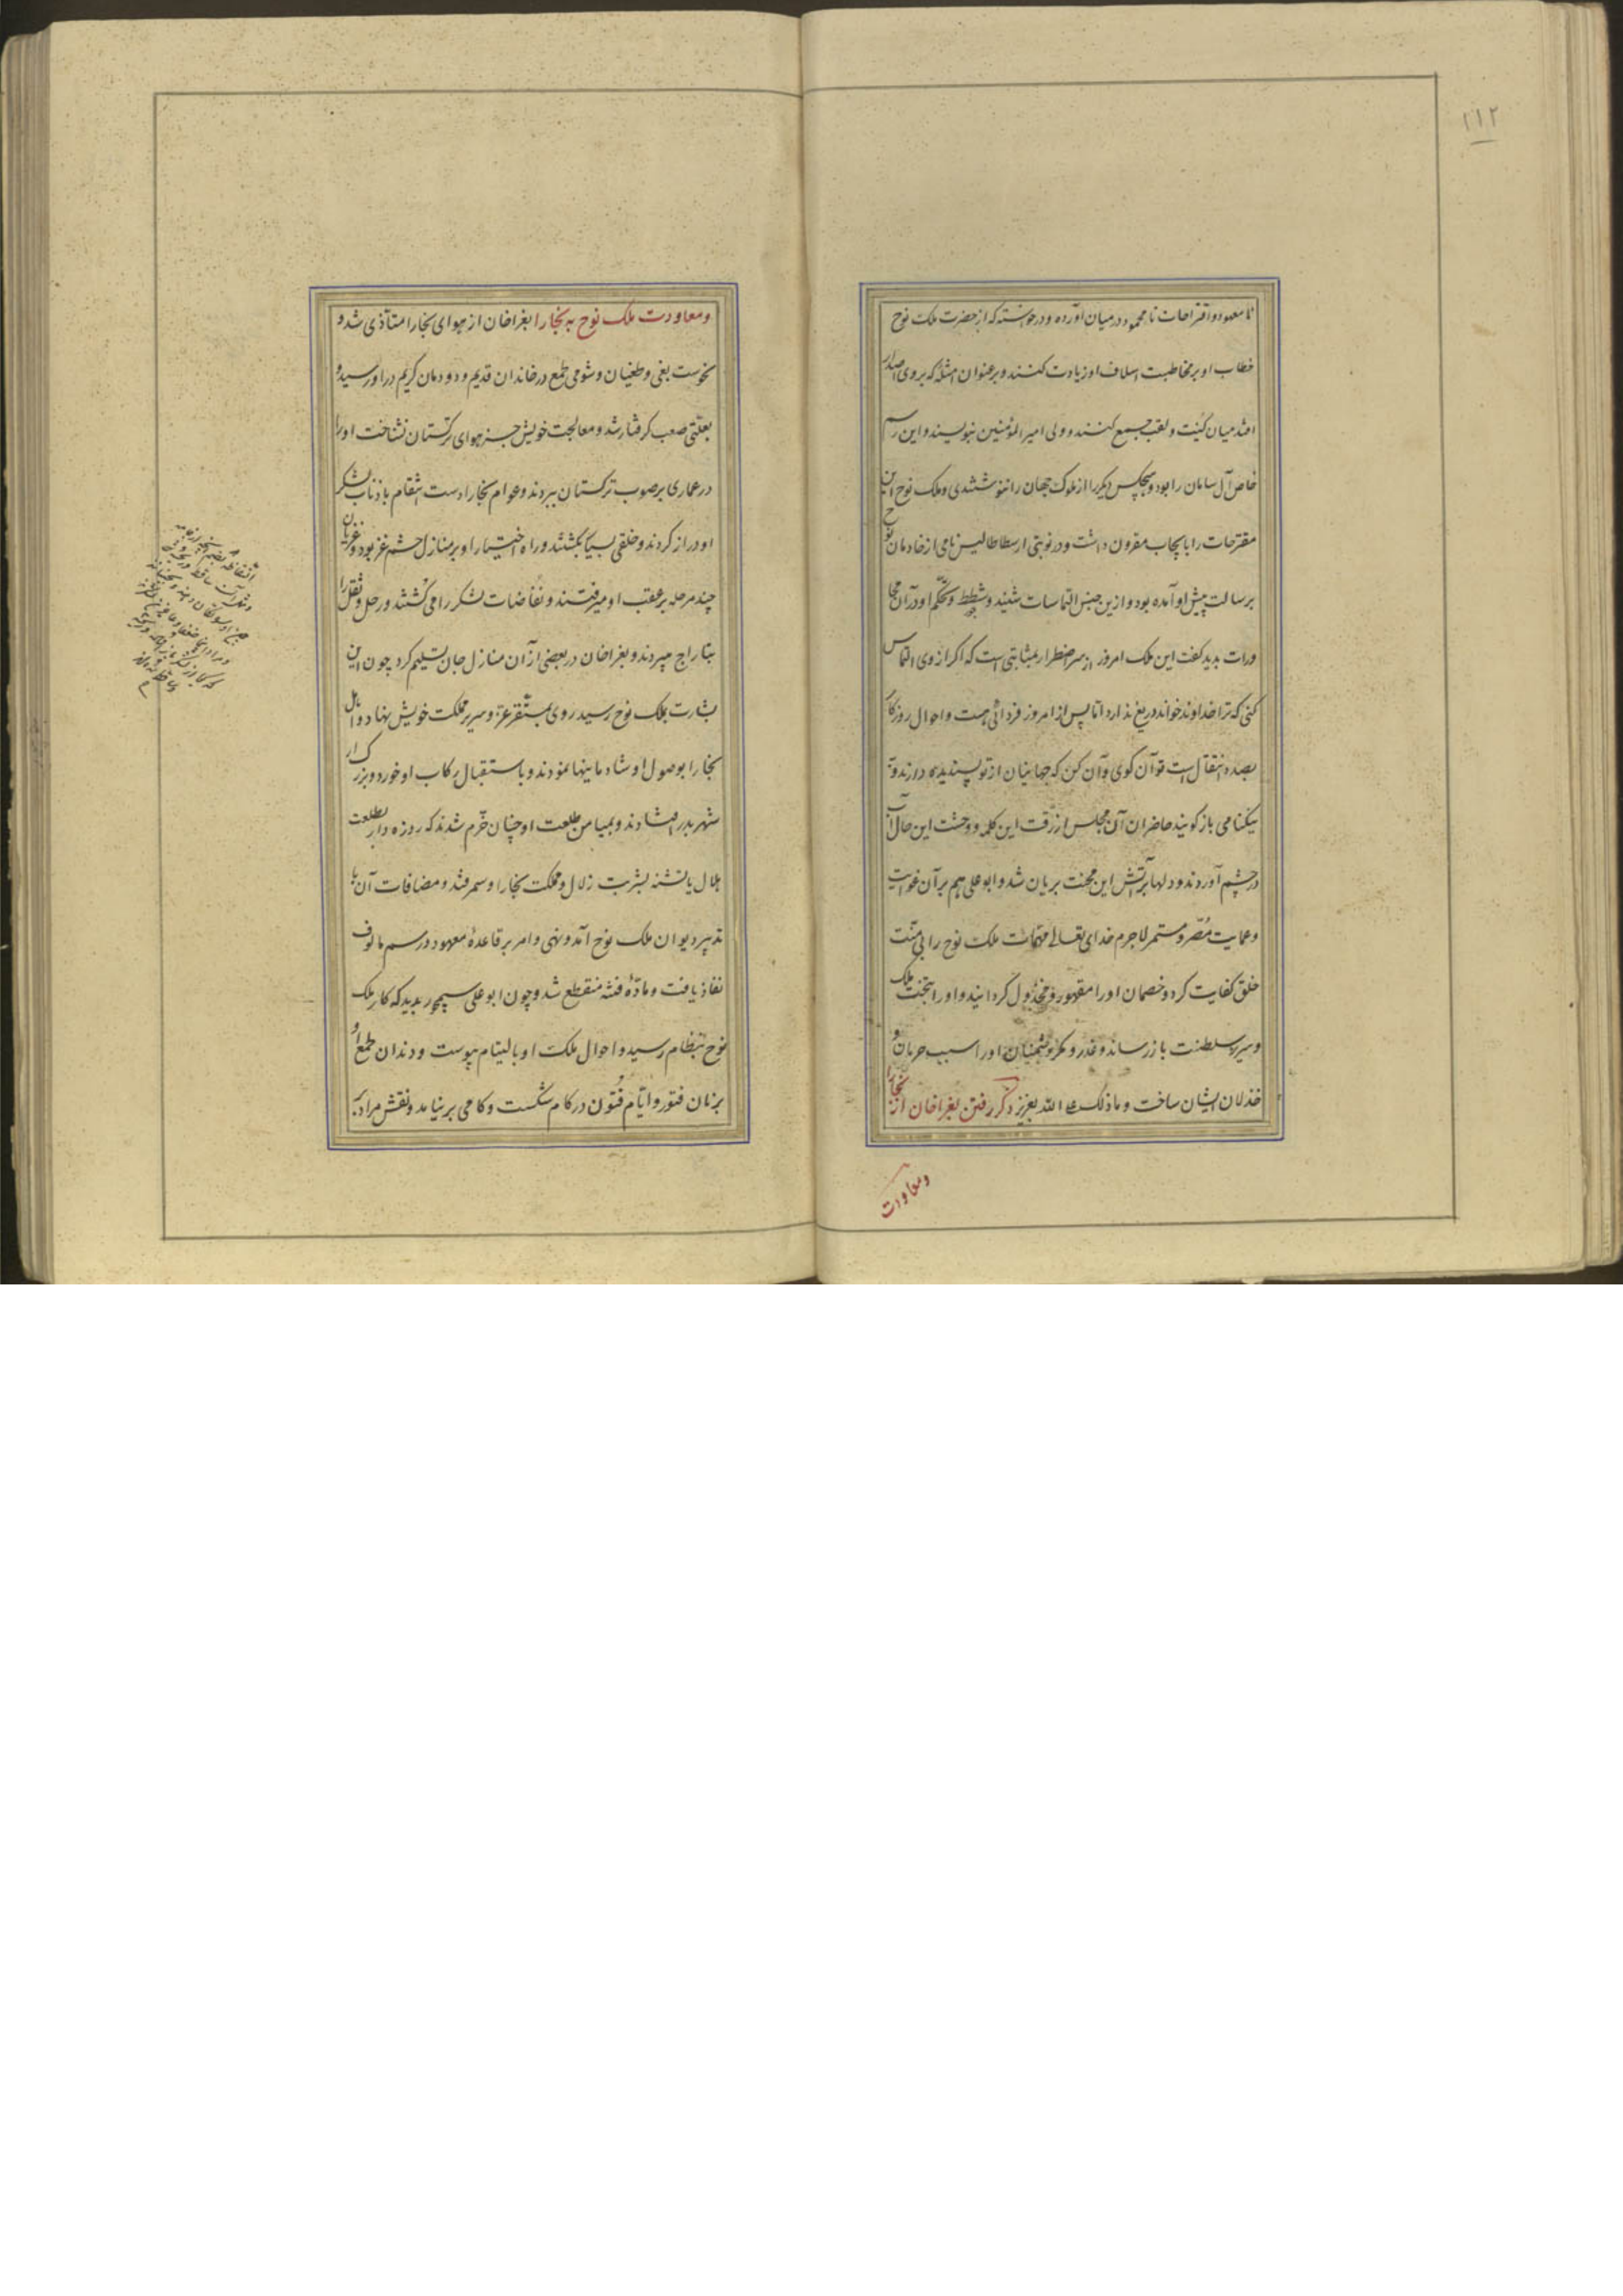 ۱۱۲
نا معهود و اقتراحات نا محمود در میان آورده و درخواسته که از حضرت ملک نوح
خطاب او بر مخاطبت اسلاف او زیادت کنند و بر عنوان امثله که بروی اصدار
افتد میان کنیت و لقب جمع کنند و ولی امیر المؤمنین نبویسند و این رسم
خاص آل سامان را بود و هیچکس دیگر را از ملوک جهان را ننوشتندی و ملک نوح این
مقترحات را بایجاب مقرون داشت و در نوبتی ارسطاطالیس نامی از خادمان نوح
برسالت پیش او آمده بود و ازین جنس التماسات شنید و شطط و تحکم او در آن
ورات بدید گفت این ملک امروز از سر اضطرار بمثابتی است که اگر از وی التماس
کنی که ترا خداوند خواند دریغ ندارد اما پس از امروز فردائی هست و احوال روزگار
بصدد انتقال است تو آن کوی و آن کن که جهانیان از تو پسندیده دارند و به
نیکنامی باز کویند حاضران آن مجلس از رقت این کلمه و وحشت این حال آب
در چشم آوردند و دلها بر آتش این محنت بریان شد و ابو علی هم بر آن غوایت
و عمایت مصر و مستمر لاجرم خدای تعالی مهمات ملک نوح را بی منت
خلق کفایت کرد و خصمان او را مقهور و مخذول کردانید و او را بتخت ملک
و سریر سلطنت باز رساند و غدر و مکر دشمنان او را سبب حرمان و
خذلان ایشان ساخت و ماذلک علی الله بعزیز ذکر رفتن بغراخان از بخارا
ومعاودت
و معاودت ملک نوح به بخارا بغراخان از هوای بخارا متأذی شد و
نحوست بغی و طغیان و شومی طمع در خاندان قدیم و دودمان کریم در او رسید و
بعلتی صعب گرفتار شد و معالجت خویش جز هوای ترکستان نشناخت او را
در عماری بر صوب ترکستان ببردند و عوام بخارا دست انتقام باذناب لشکر
او دراز کردند و خلقی بسیار بکشتند و راه اختیار او بر منازل حشم غز بود و غزیان
چند مرحله بر عقب او میرفتند و نفاضات لشکر را می کشتند و رحل و ثقل را
بتاراج میبردند و بغراخان در بعضی از آن منازل جان تسلیم کرد چون این
بشارت بملک نوح رسید روی بمستقر عز و سریر مملکت خویش نهاد و اهل
بخارا بوصول او شادمانیها نمودند و باستقبال رکاب او خورد و بزرک از
شهر بدر افتادند و بمیامن طلعت او چنان خرم شدند که روزه دار بطلعت
هلال یا تشنه بشربت زلال و مملکت بخارا و سمرقند و مضافات آن با
تدبیر دیوان ملک نوح آمد و نهی و امر بر قاعده معهود و رسم مالوف
نفاذ یافت و ماده فتنه منقطع شد و چون ابو علی سیمجور بدید که کار ملک
نوح بنظام رسید و احوال ملک او بالتیام پیوست و دندان طمع او
بزمان فتور و ایام فتون در کام شکست و کامی بر نیامد و نقش مراد بر